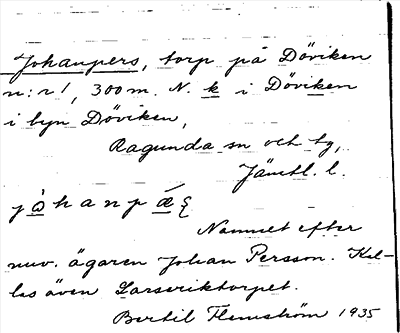 Johanpers, torp på Döviken
n:r 1, 300 m. N. k i Döviken
i byn Döviken,
Ragunda sn och tg,
Jämtl. l.
jòhanpǽʂ
Namnet efter
nuv. ägaren Johan Persson. Kal-
las även Larseriktorpet.
Bertil Flemström 1935